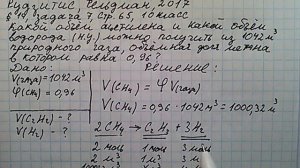 Рудзитис, Фельдман, 2017
§ 19, задача 7, стр. 65, 10 класс
Какой объём ацетилена и какой объём
водорода (н.у) можно получить из 1042 м³
природного газа, объёмная доля метана
в котором равна 0,96?
Дано: Решение:
V(газа)=1042 м³ V(CH₄) = φ · V(газа)
V(CH₄) = 0,96 · 1042 м³ = 1000,32 м³
V(C₂H₂) - ?
V(H₂) - ?
2CH₄ → C₂H₂ + 3H₂
2 моль 1 моль 3 моль
2 м³ 1 м³ 3 м³